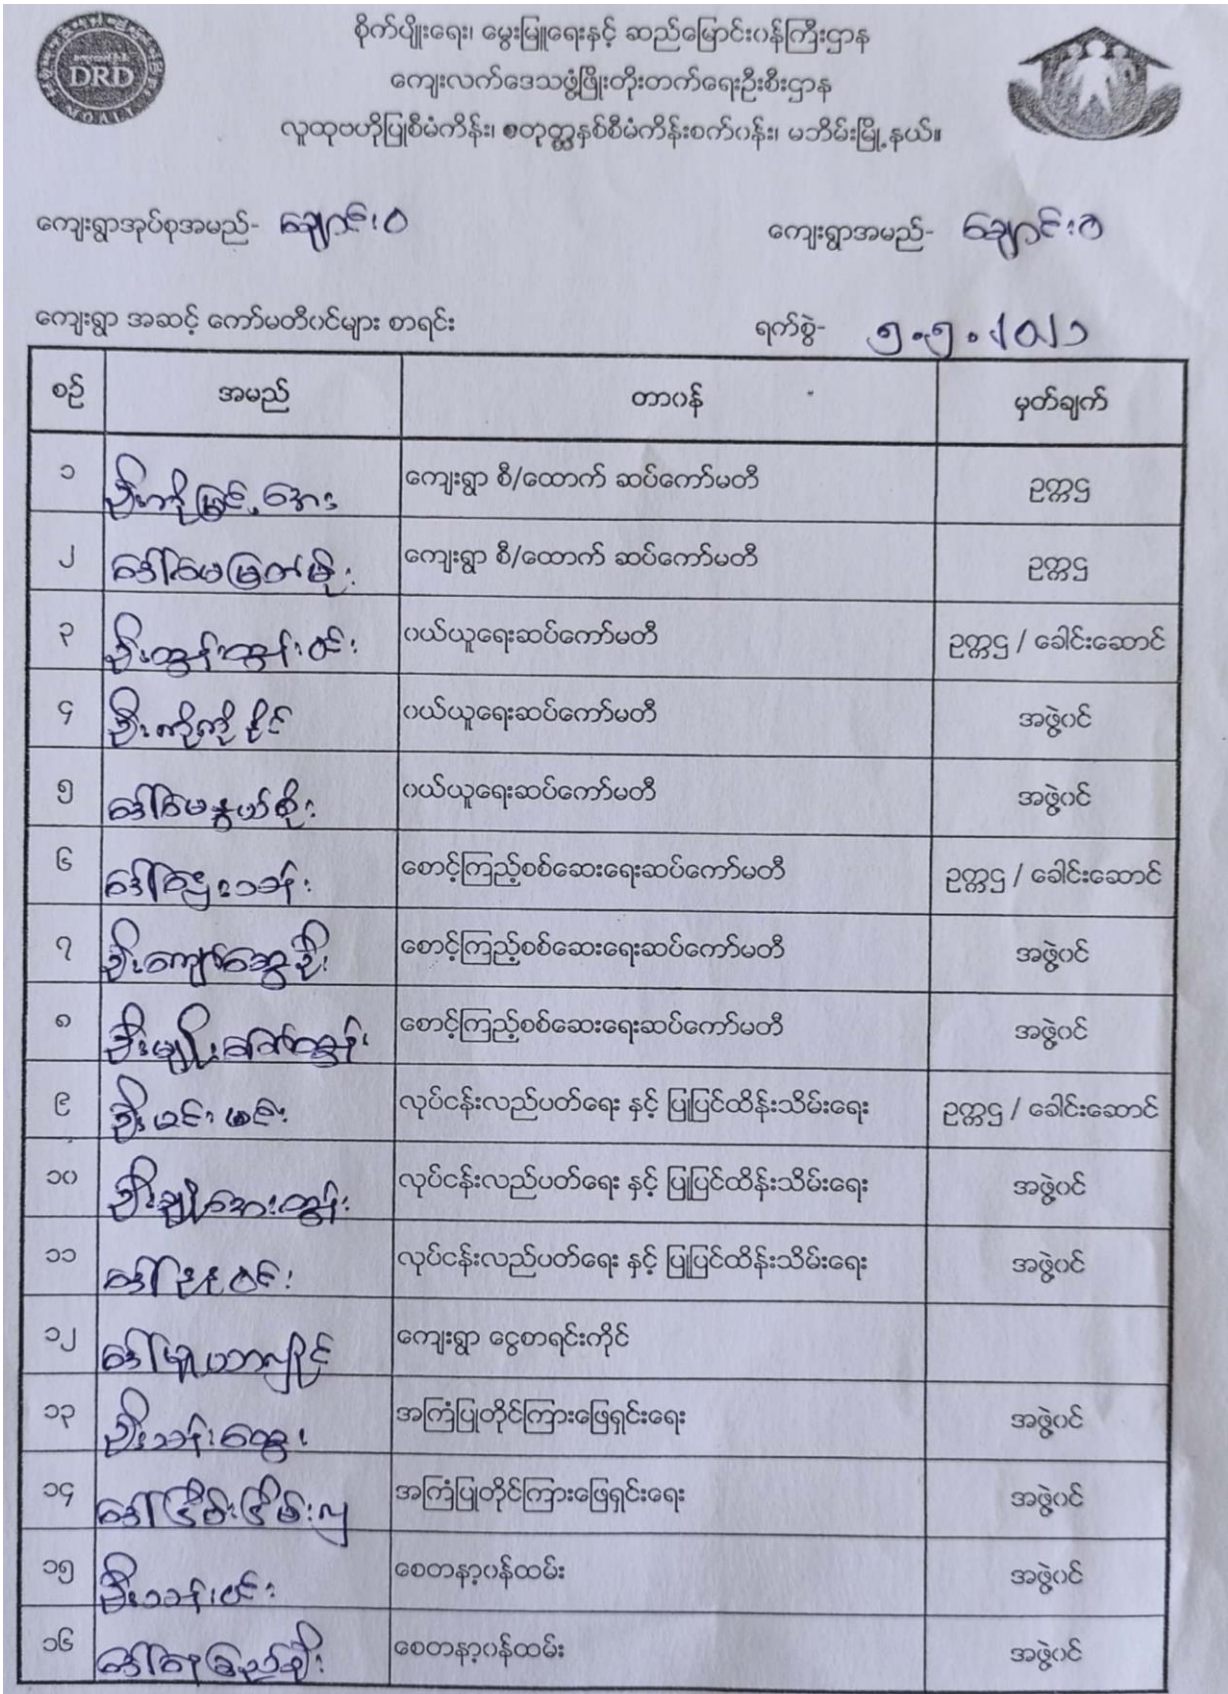 DRD
စိုက်ပျိုးရေး၊ မွေးမြူရေးနှင့် ဆည်မြောင်းဝန်ကြီးဌာန
ကျေးလက်ဒေသဖွံ့ဖြိုးတိုးတက်ရေးဦးစီးဌာန
လူထုဗဟိုပြုစီမံကိန်း၊ စတုတ္ထနှစ်စီမံကိန်းစက်ဝန်း၊ မဘိမ်းမြို့နယ်။
ကျေးရွာအုပ်စုအမည်- ချောင်းဝ ကျေးရွာအမည်- ချောင်းဝ
ကျေးရွာ အဆင့် ကော်မတီဝင်များ စာရင်း ရက်စွဲ- ၅.၅.၂၀၂၁
စဉ် အမည် တာဝန် မှတ်ချက်
၁ ဦးကိုမြင့်အေး ကျေးရွာ စီ/ထောက် ဆပ်ကော်မတီ ဥက္ကဌ
၂ ဒေါ်မေမြတ်မိုး ကျေးရွာ စီ/ထောက် ဆပ်ကော်မတီ ဥက္ကဌ
၃ ဦးထွန်းထွန်းဝင်း ဝယ်ယူရေးဆပ်ကော်မတီ ဥက္ကဌ / ခေါင်းဆောင်
၄ ဦးကိုကိုနိုင် ဝယ်ယူရေးဆပ်ကော်မတီ အဖွဲ့ဝင်
၅ ဒေါ်မေနွယ်စိုး ဝယ်ယူရေးဆပ်ကော်မတီ အဖွဲ့ဝင်
၆ စောင့်ကြည့်စစ်ဆေးရေးဆပ်ကော်မတီ ဥက္ကဌ / ခေါင်းဆောင်
၇ ဦးကျော်ဆွေဦး စောင့်ကြည့်စစ်ဆေးရေးဆပ်ကော်မတီ အဖွဲ့ဝင်
၈ ဦးမျိုးဇော်ထွန်း စောင့်ကြည့်စစ်ဆေးရေးဆပ်ကော်မတီ အဖွဲ့ဝင်
၉ ဦးမင်းမင်း လုပ်ငန်းလည်ပတ်ရေး နှင့် ပြုပြင်ထိန်းသိမ်းရေး ဥက္ကဌ / ခေါင်းဆောင်
၁၀ ဦးချိုအေးထွန်း လုပ်ငန်းလည်ပတ်ရေး နှင့် ပြုပြင်ထိန်းသိမ်းရေး အဖွဲ့ဝင်
၁၁ ဒေါ်နုနုဝင်း လုပ်ငန်းလည်ပတ်ရေး နှင့် ပြုပြင်ထိန်းသိမ်းရေး အဖွဲ့ဝင်
၁၂ ကျေးရွာ ငွေစာရင်းကိုင်
၁၃ ဦးသန်းထွေး အကြံပြုတိုင်ကြားဖြေရှင်းရေး အဖွဲ့ဝင်
၁၄ ဒေါ်ငြိမ်းငြိမ်းလှ အကြံပြုတိုင်ကြားဖြေရှင်းရေး အဖွဲ့ဝင်
၁၅ ဦးသန်းဝင်း စေတနာ့ဝန်ထမ်း အဖွဲ့ဝင်
၁၆ စေတနာ့ဝန်ထမ်း အဖွဲ့ဝင်